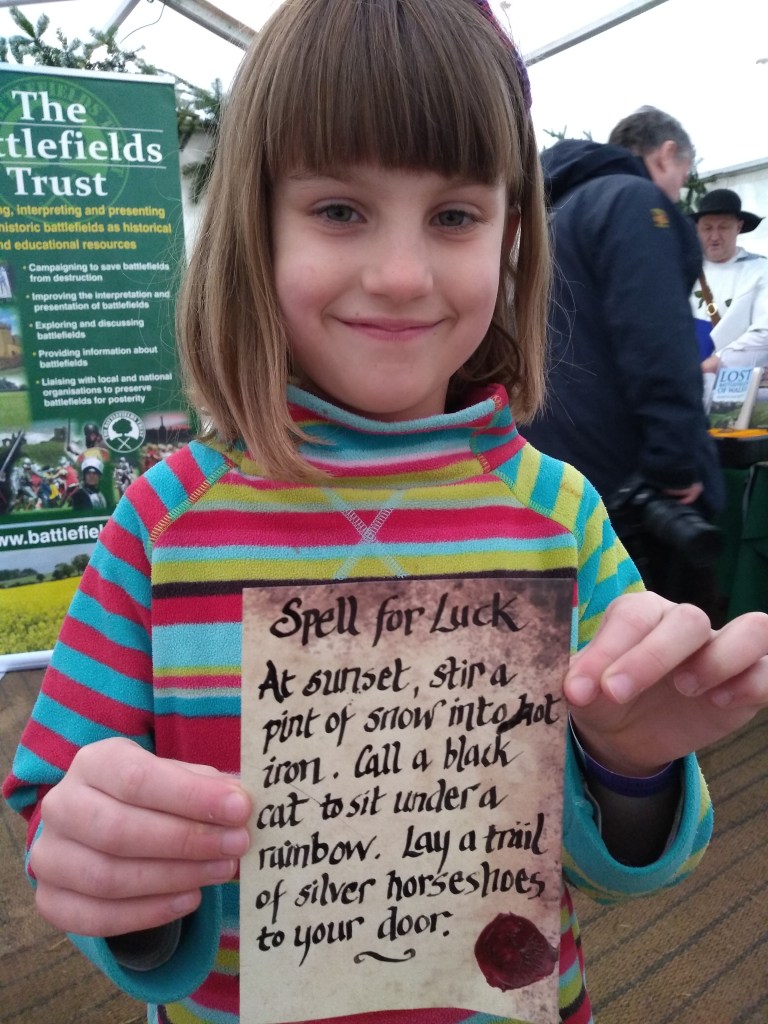 The
ttlefields
Trust
ng, interpreting and presenting
historic battlefields as historical
nd educational resources
• Campaigning to save battlefields
from destruction
• Improving the interpretation and
presentation of battlefields
• Exploring and discussing
battlefields
• Providing information about
battlefields
• Liaising with local and national
organisations to preserve
battlefields for posterity
ww.battlefiel
LOST
Spell for Luck
At sunset, stir a
pint of snow into hot
iron. Call a black
cat to sit under a
rainbow. Lay a trail
of silver horseshoes
to your door.